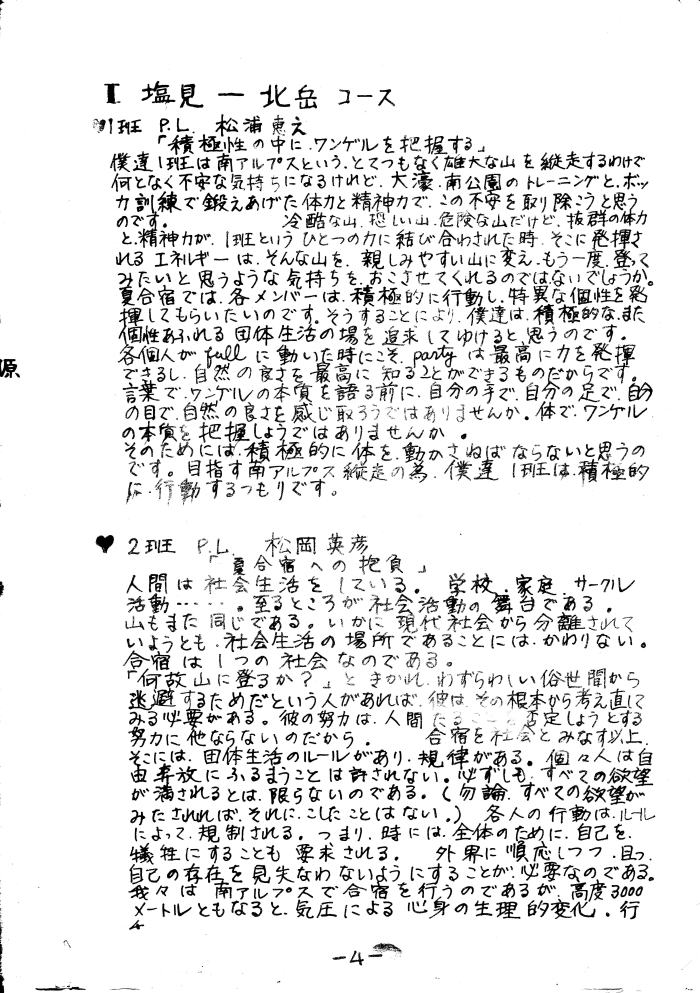 I 塩見 ― 北岳 コース
♥1班 P.L. 松浦恵之
「積極性の中に、ワンゲルを把握する」
僕達1班は南アルプスという、とてつもなく雄大な山を縦走するわけで
何となく不安な気持ちになるけれど、大濠、南公園のトレーニングと、ボッ
カ訓練で鍛えあげた体力と精神力で、この不安を取り除こうと思う
のです。 冷酷な山、恐しい山、危険な山だけど、抜群の体力
と、精神力が、1班というひとつの力に結び合わされた時、そこに発揮さ
れるエネルギーは、そんな山を、親しみやすい山に変え、もう一度、登って
みたいと思うような気持ちを、おこさせてくれるのではないでしょうか。
夏合宿では、各メンバーは、積極的に行動し、特異な個性を発
揮してもらいたいのです。そうすることにより、僕達は、積極的な、また
個性あふれる団体生活の場を追求してゆけると思うのです。
各個人がfullに動いた時にこそ、partyは最高に力を発揮
できるし、自然の良さを最高に知ることができるものだからです。
言葉で、ワンゲルの本質を語る前に、自分の手で、自分の足で、自分
の目で、自然の良さを感じ取ろうではありませんか。体で、ワンゲル
の本質を把握しようではありませんか。
そのためには、積極的に体を動かさねばならないと思うの
です。目指す南アルプス縦走の為、僕達1班は、積極的
に、行動するつもりです。
♥ 2班 P.L. 松岡英彦
「夏合宿への抱負」
人間は社会生活をしている。 学校、家庭、サークル
活動……。至るところが社会活動の舞台である。
山もまた同じである。いかに現代社会から分離されて
いようとも、社会生活の場所であることには、かわりない。
合宿は1つの社会なのである。
「何故山に登るか?」ときかれ、わずらわしい俗世間から
逃避するためだという人があれば、彼は、その根本から考え直して
みる必要がある。彼の努力は、人間たることを否定しようとする
努力に他ならないのだから。 合宿を社会とみなす以上、
そこには、団体生活のルールがあり、規律がある。個々人は自
由奔放にふるまうことは許されない。必ずしも、すべての欲望
が満されるとは、限らないのである。(勿論、すべての欲望が
みたされれば、それに、こしたことはない。) 各人の行動は、ルール
によって、規制される。つまり、時には、全体のために、自己を、
犠牲にすることも要求される。 外界に順応しつつ、且つ、
自己の存在を見失なわないようにすることが、必要なのである。
我々は南アルプスで合宿を行うのであるが、高度3000
メートルともなると、気圧による心身の生理的変化、行
-4-
原